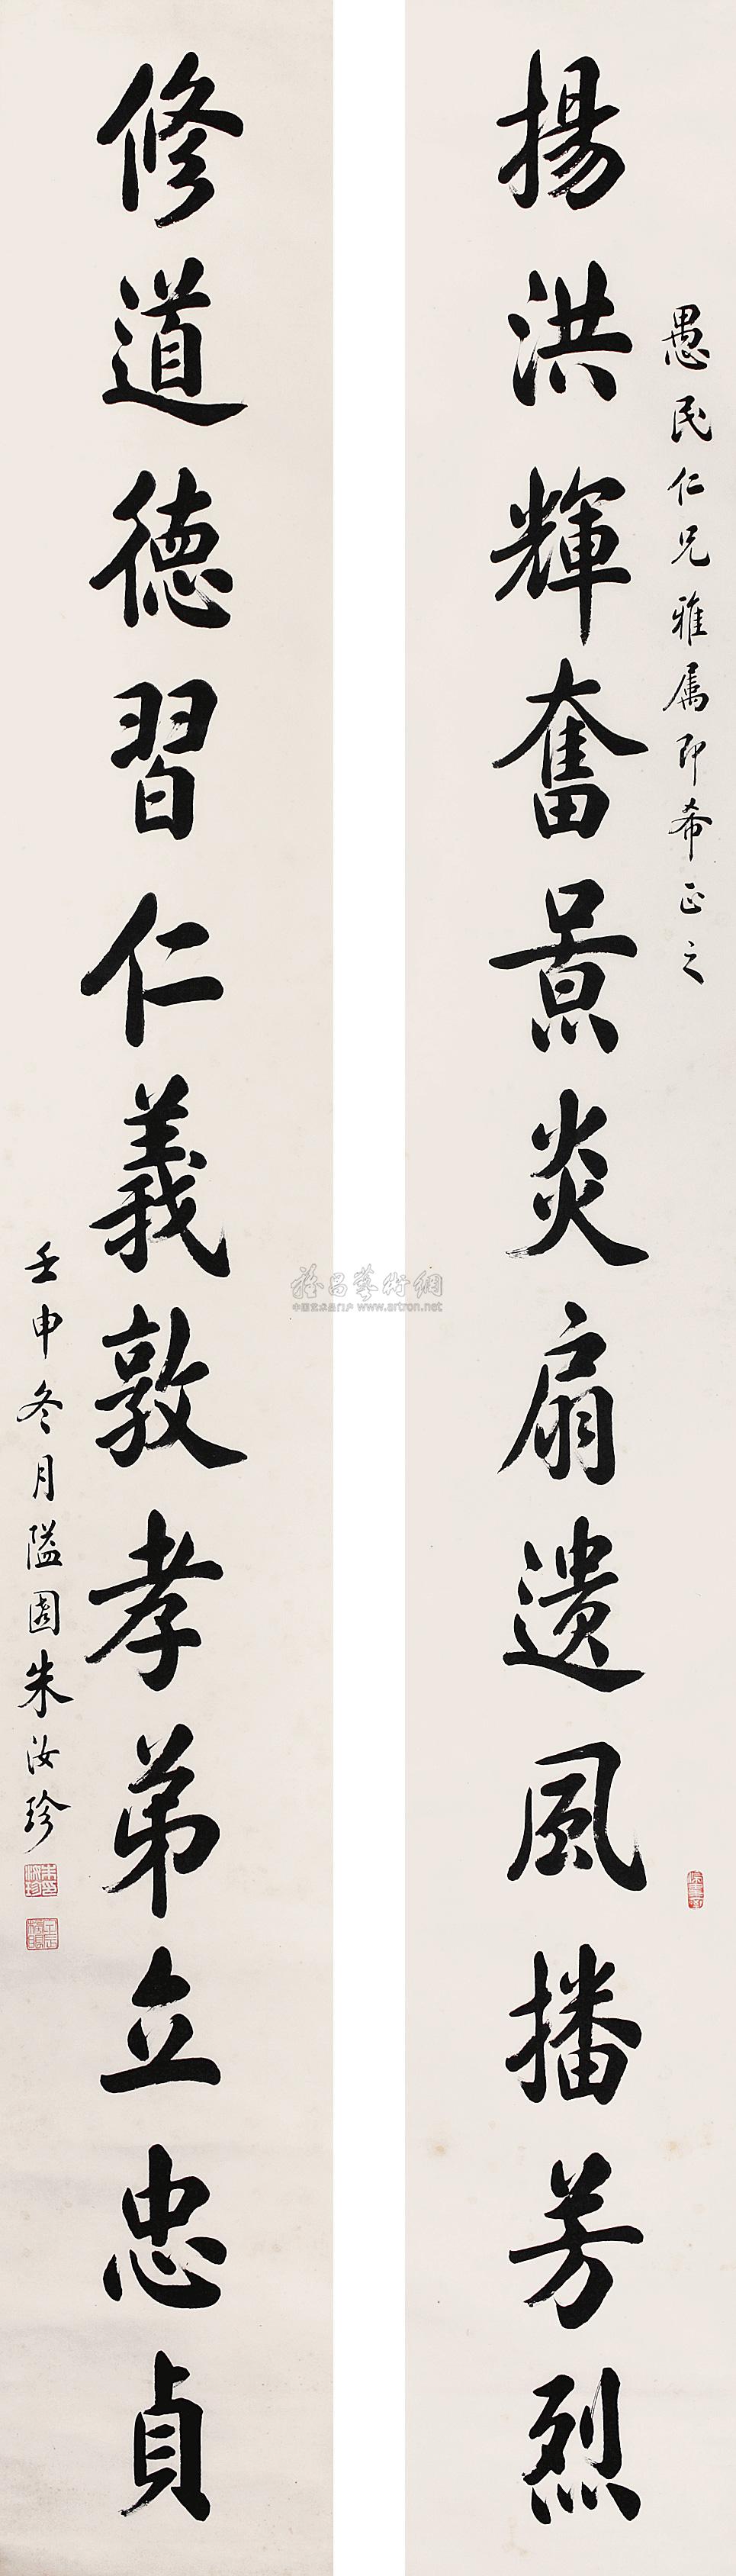 愚民仁兄雅属即希正之
揚洪輝奮景炎扇遺風播芳烈
修道德習仁義敦孝弟立忠貞
壬申冬月隘園朱汝珍
雅昌藝術網
中国艺术品门户 www.artron.net